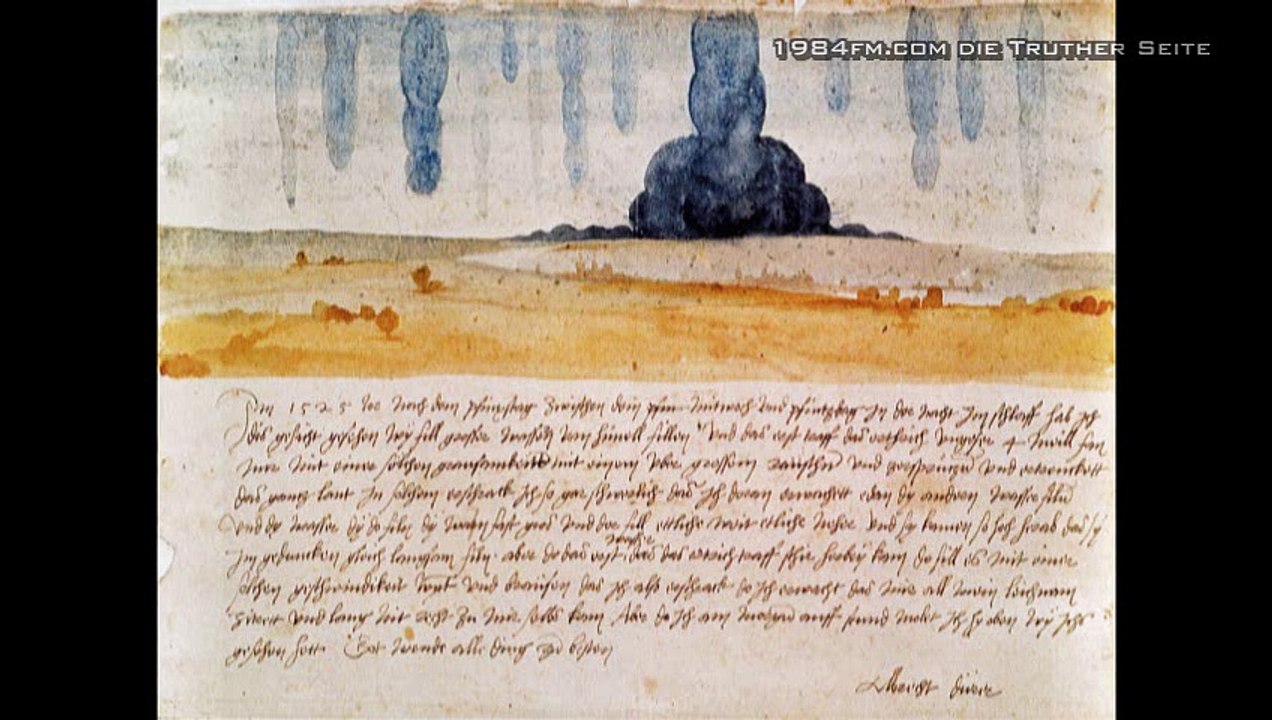 1984FM.COM DIE TRUTHER SEITE
Im 1525 Jor nach dem pfinxstag zwischen dem mitwoch und pfintzdag in der nacht im schlaff hab ich
dis gesicht gesehen wy fill grosser wassern vom himell fillen Und das erst traff das erthrich ungefer 4 meill fan
mir mit einer solchen grausamkeitt mit einem uber grossem raüschn und zersprützn und ertrenckett
das gantz lant In solchem erschrack ich so gar schwerlich das ich doran erwachett e dan dy andern wasser filn
Und dy wasser dy do filn dy warn fast gros und der fill ettliche weit etliche neher und sy kamen so hoch herab das sy
im gedancken gleich langsam filn. aber do das erst wasser das das ertrich traff schir herbey kam do fill es mit einer
solchen geschwindikeit wynt und braüsen das ich also erschrack do ich erwacht das mir all mein leichnam
zitrett und lang nit recht zu mir selbs kam Aber do ich am morgn auff stund molet ich hy oben wy ichs
gesehen hett. Got wende alle ding zu besten
Albrecht dürer